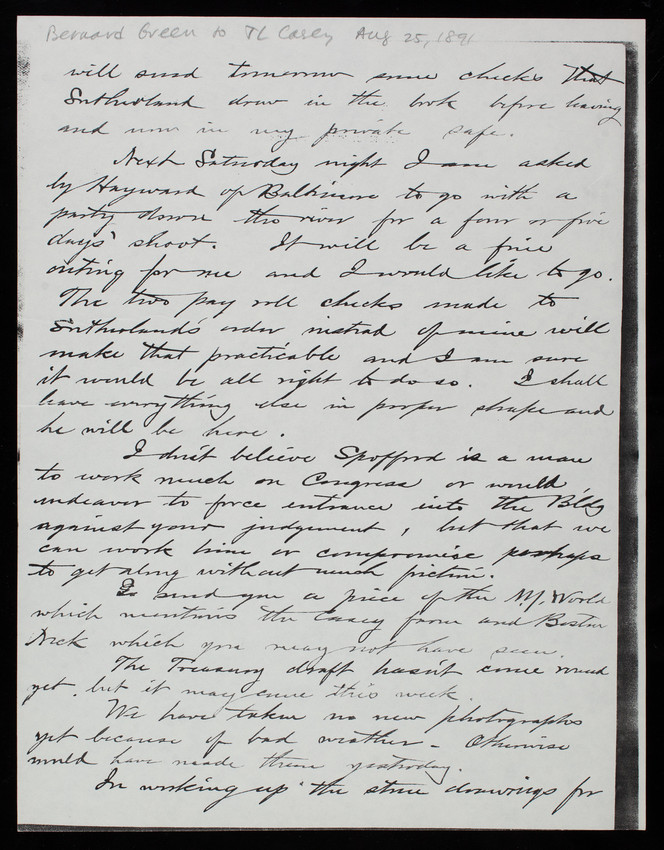 Bernard Green to TL Casey Aug 25, 1891
will send tomorrow some checks that
Sutherland drew in the book before leaving
and now in my private safe.
Next Saturday night I am asked
by Hayward of Baltimore to go with a
party down the river for a four or five
days' shoot. It will be a fine
outing for me and I would like to go.
The two pay roll checks made to
Sutherland's order instead of mine will
make that practicable and I am sure
it would be all right to do so. I shall
leave everything else in proper shape and
he will be here.
I don't believe Spofford is a man
to work much on Congress or would
endeavor to force entrance into the Bldg
against your judgement, but that we
can work him or compromise perhaps
to get along without much friction.
I send you a piece of the N.Y. World
which mentions the Casey farm and Boston
Neck which you may not have seen.
The Treasury draft hasn't come round
yet, but it may come this week
We have taken no new photographs
yet because of bad weather - Otherwise
would have made them yesterday.
In working up the stone drawings for